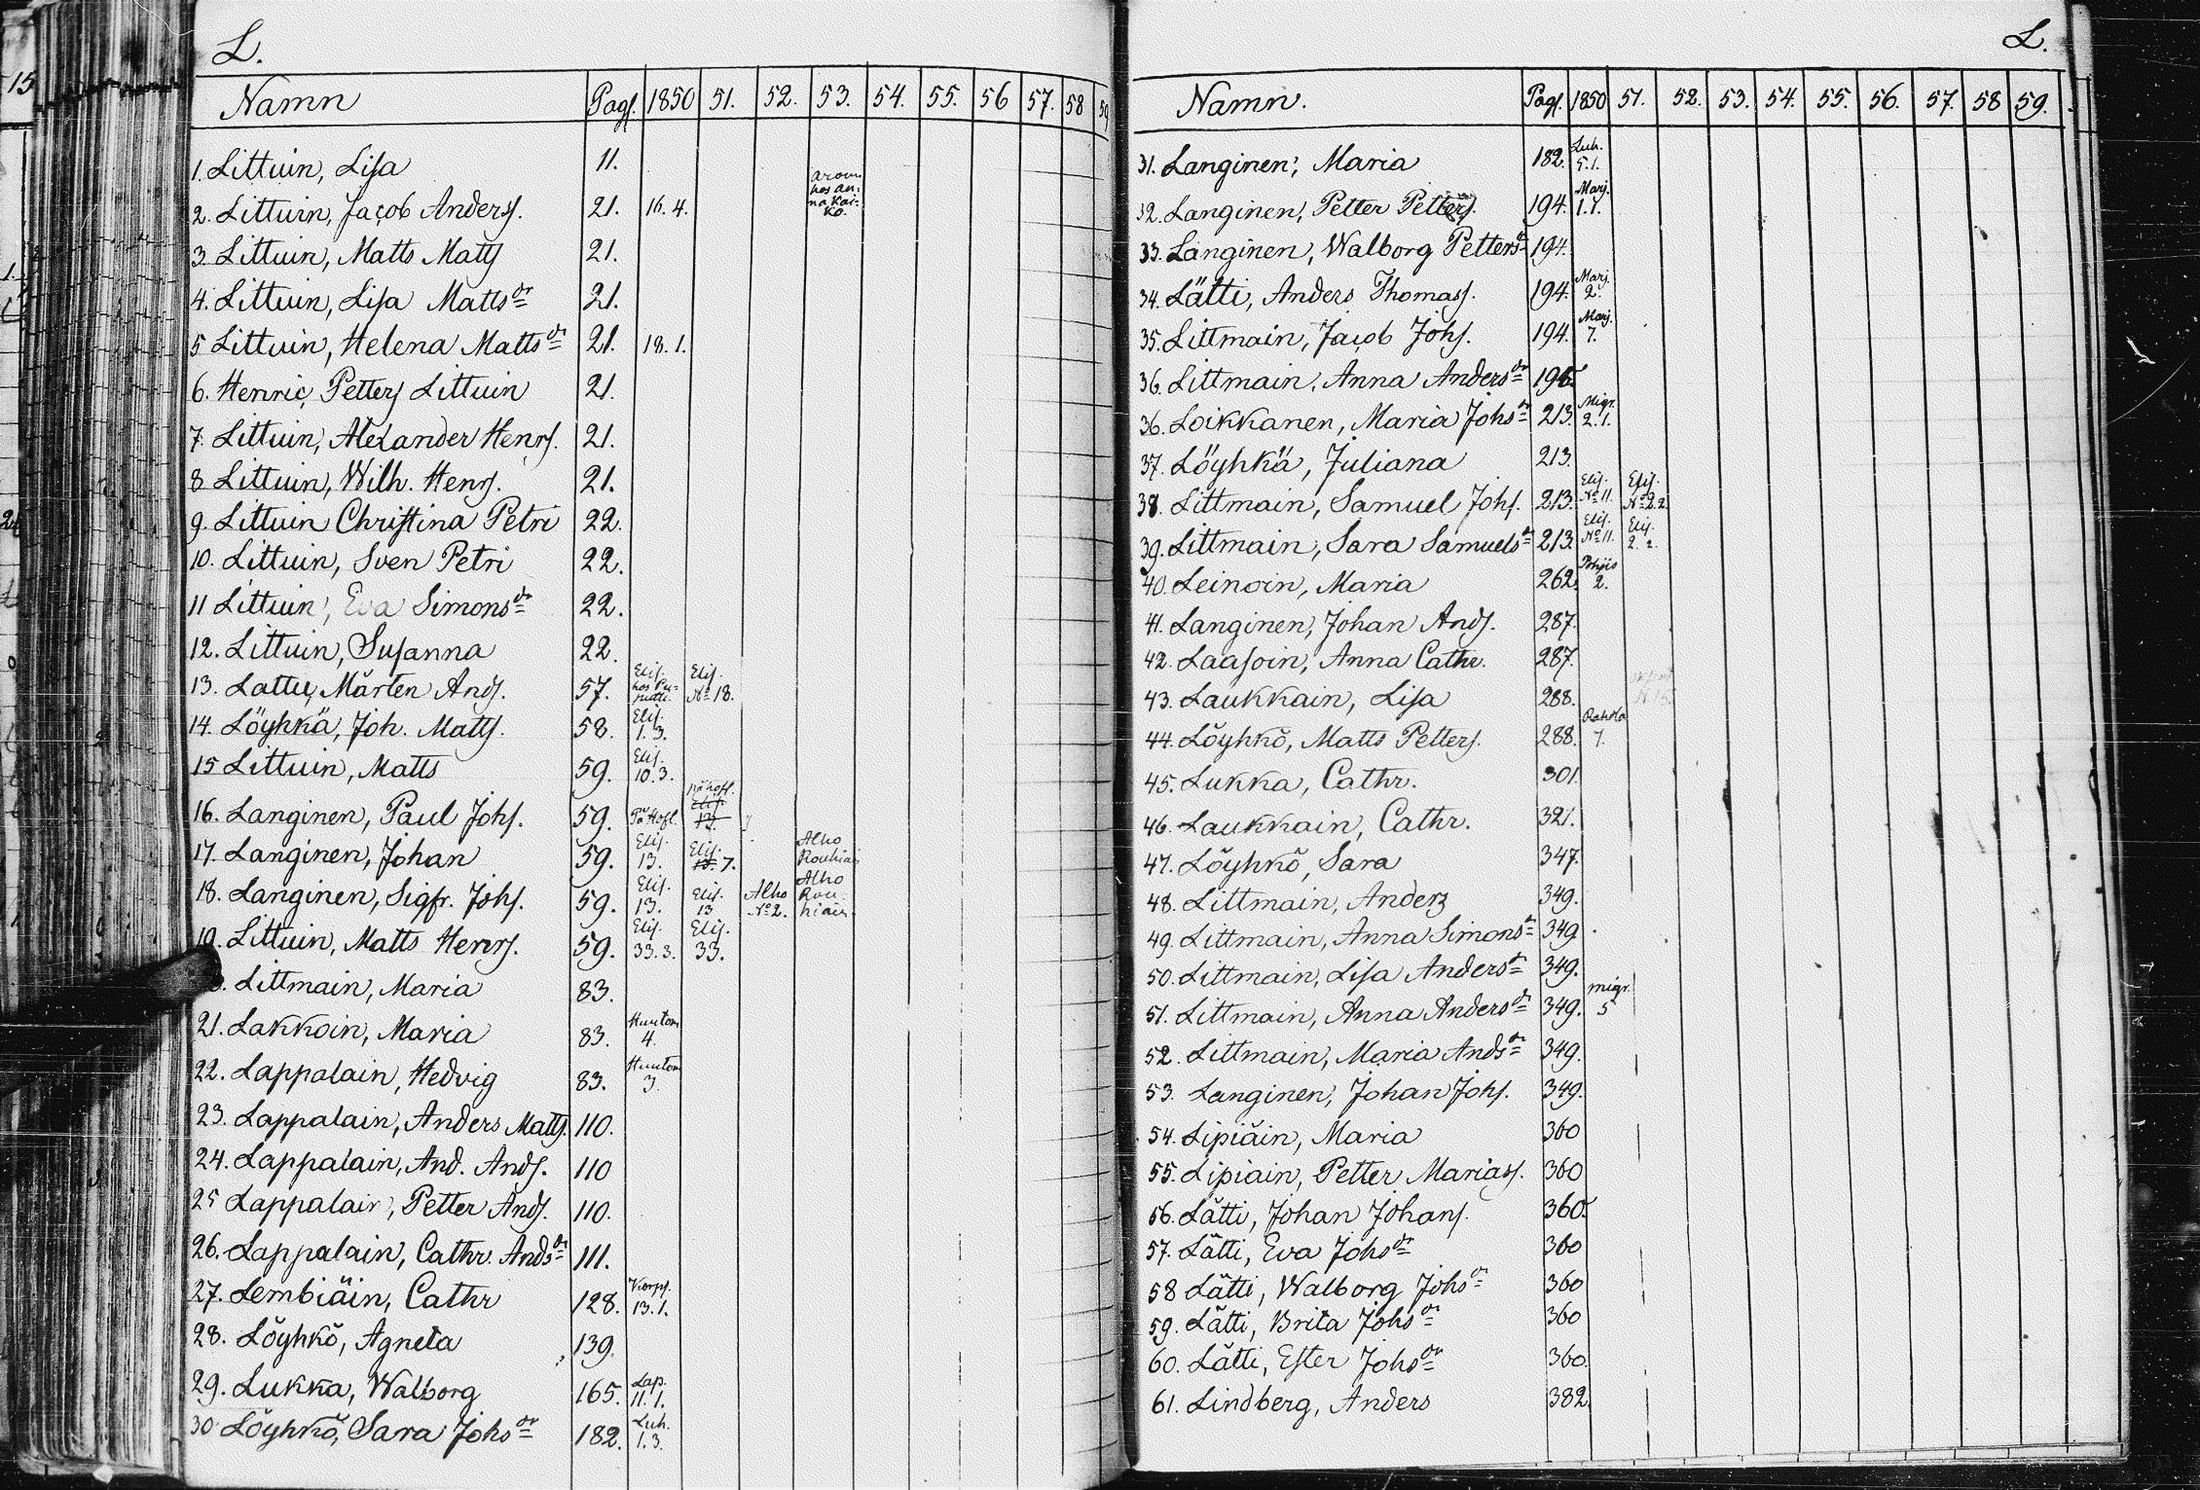 L.
Namn Pag. 1850 51. 52. 53. 54. 55. 56 57. 58 59
1. Littuin, Lisa 11.
2. Littuin, Jacob Anders. 21. 16.4. hos An:na Kai:ko.
3 Littuin, Matts Matts 21.
4. Littuin, Lisa Matts dr 21.
5 Littuin, Helena Matts dr 21. 18.1.
6. Henric Petters Littuin 21.
7. Littuin, Alexander Henrs. 21.
8 Littuin, Wilh. Henrs. 21.
9. Littuin Christina Petri 22.
10. Littuin, Sven Petri 22.
11 Littuin, Eva Simons dr 22.
12. Littuin, Susanna 22.
13. Lattu, Mårten Ands. 57. Elis. hos Elis. No 18.
14. Löyhkä, Joh. Matts. 58. Elis. 1.3.
15 Littuin, Matts 59. Elis. 10.3.
16. Langinen, Paul Johs. 59. På Hofl. på hofl. Elis. 13.
17. Langinen, Johan 59. Elis. 13. Elis. 13. 7. Alho Rouhiai
18. Langinen, Sigfr. Johs. 59. Elis. 13. Elis. 13 Alho No 2. Alho Rouhiain.
19. Littuin, Matts Henrs. 59. Elis. 33.3. Elis. 33.
Littmain, Maria 83.
21. Lakkoin, Maria 83. Humtom 4.
22. Lappalain, Hedvig 83. Humtom 3.
23. Lappalain, Anders Matts. 110.
24. Lappalain, And. Ands. 110
25 Lappalain, Petter Ands. 110.
26. Lappalain, Cathr. Ands dr 111.
27. Lembiäin, Cathr 128. Korps. 13.1.
28. Löyhkö, Agneta 139.
29. Lukka, Walborg 165. Lap. 11.1.
30 Löyhkö, Sara Johs dr 182. Luh. 1.3.
L.
Namn. Pag. 1850 51. 52. 53. 54. 55. 56. 57. 58 59.
31. Langinen, Maria 182. Luh. 5.1.
32. Langinen, Petter Petters. 194. Marj. 1.1.
33. Langinen, Walborg Petters dr 194.
34. Lätti, Anders Thomass. 194. Marj. 2.
35. Littmain, Jacob Johs. 194. Marj. 7.
36. Littmain, Anna Anders dr 195
36. Loikkanen, Maria Johs dr 213. Migr. 2.1.
37. Löyhkä, Juliana 213.
38. Littmain, Samuel Johs. 213. Elis. No 11. Elis. No 2.2.
39. Littmain, Sara Samuels dr 213 Elis. No 11. Elis. 2.2.
40. Leinoin, Maria 262. Pohjis 2.
41. Langinen, Johan Ands. 287.
42. Laasoin, Anna Cathr. 287.
43. Laukkain, Lisa 288.
44. Löyhkö, Matts Petters. 288. Rahkla 7.
45. Lukka, Cathr. 301.
46. Laukkain, Cathr. 321.
47. Löyhkö, Sara 347
48. Littmain, Anders 349.
49. Littmain, Anna Simons dr 349
50. Littmain, Lisa Anders dr 349.
51. Littmain, Anna Anders dr 349. migr. 5
52. Littmain, Maria Ands dr 349.
53. Langinen, Johan Johs. 349.
54. Lipiäin, Maria 360
55. Lipiain, Petter Mariass. 360
56. Lätti, Johan Johans. 360.
57. Lätti, Eva Johs dr 360
58 Lätti, Walborg Johs dr 360
59. Lätti, Brita Johs dr 360
60. Lätti, Ester Johs dr 360.
61. Lindberg, Anders 382.